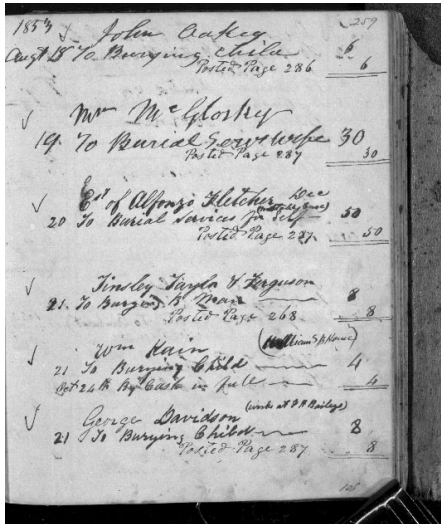 1853 John Oakey 259
Augt 18 To Burying Child 6
Posted Page 286 6
Mr McGlosky
19. To Burial Serv wife 30
Posted Page 287 30
Est of Alfonzo Fletcher Dec
20 To Burial Services for Self 50
Posted Page 287 50
Tinsley Taylor & Ferguson
21. To Burying Man 8
Posted Page 268 8
Wm Kain
21 To Burying Child 4
Oct 24th By Cash in full 4
George Davidson (works at Baileys)
21 To Burying Child 8
Posted Page 287 8